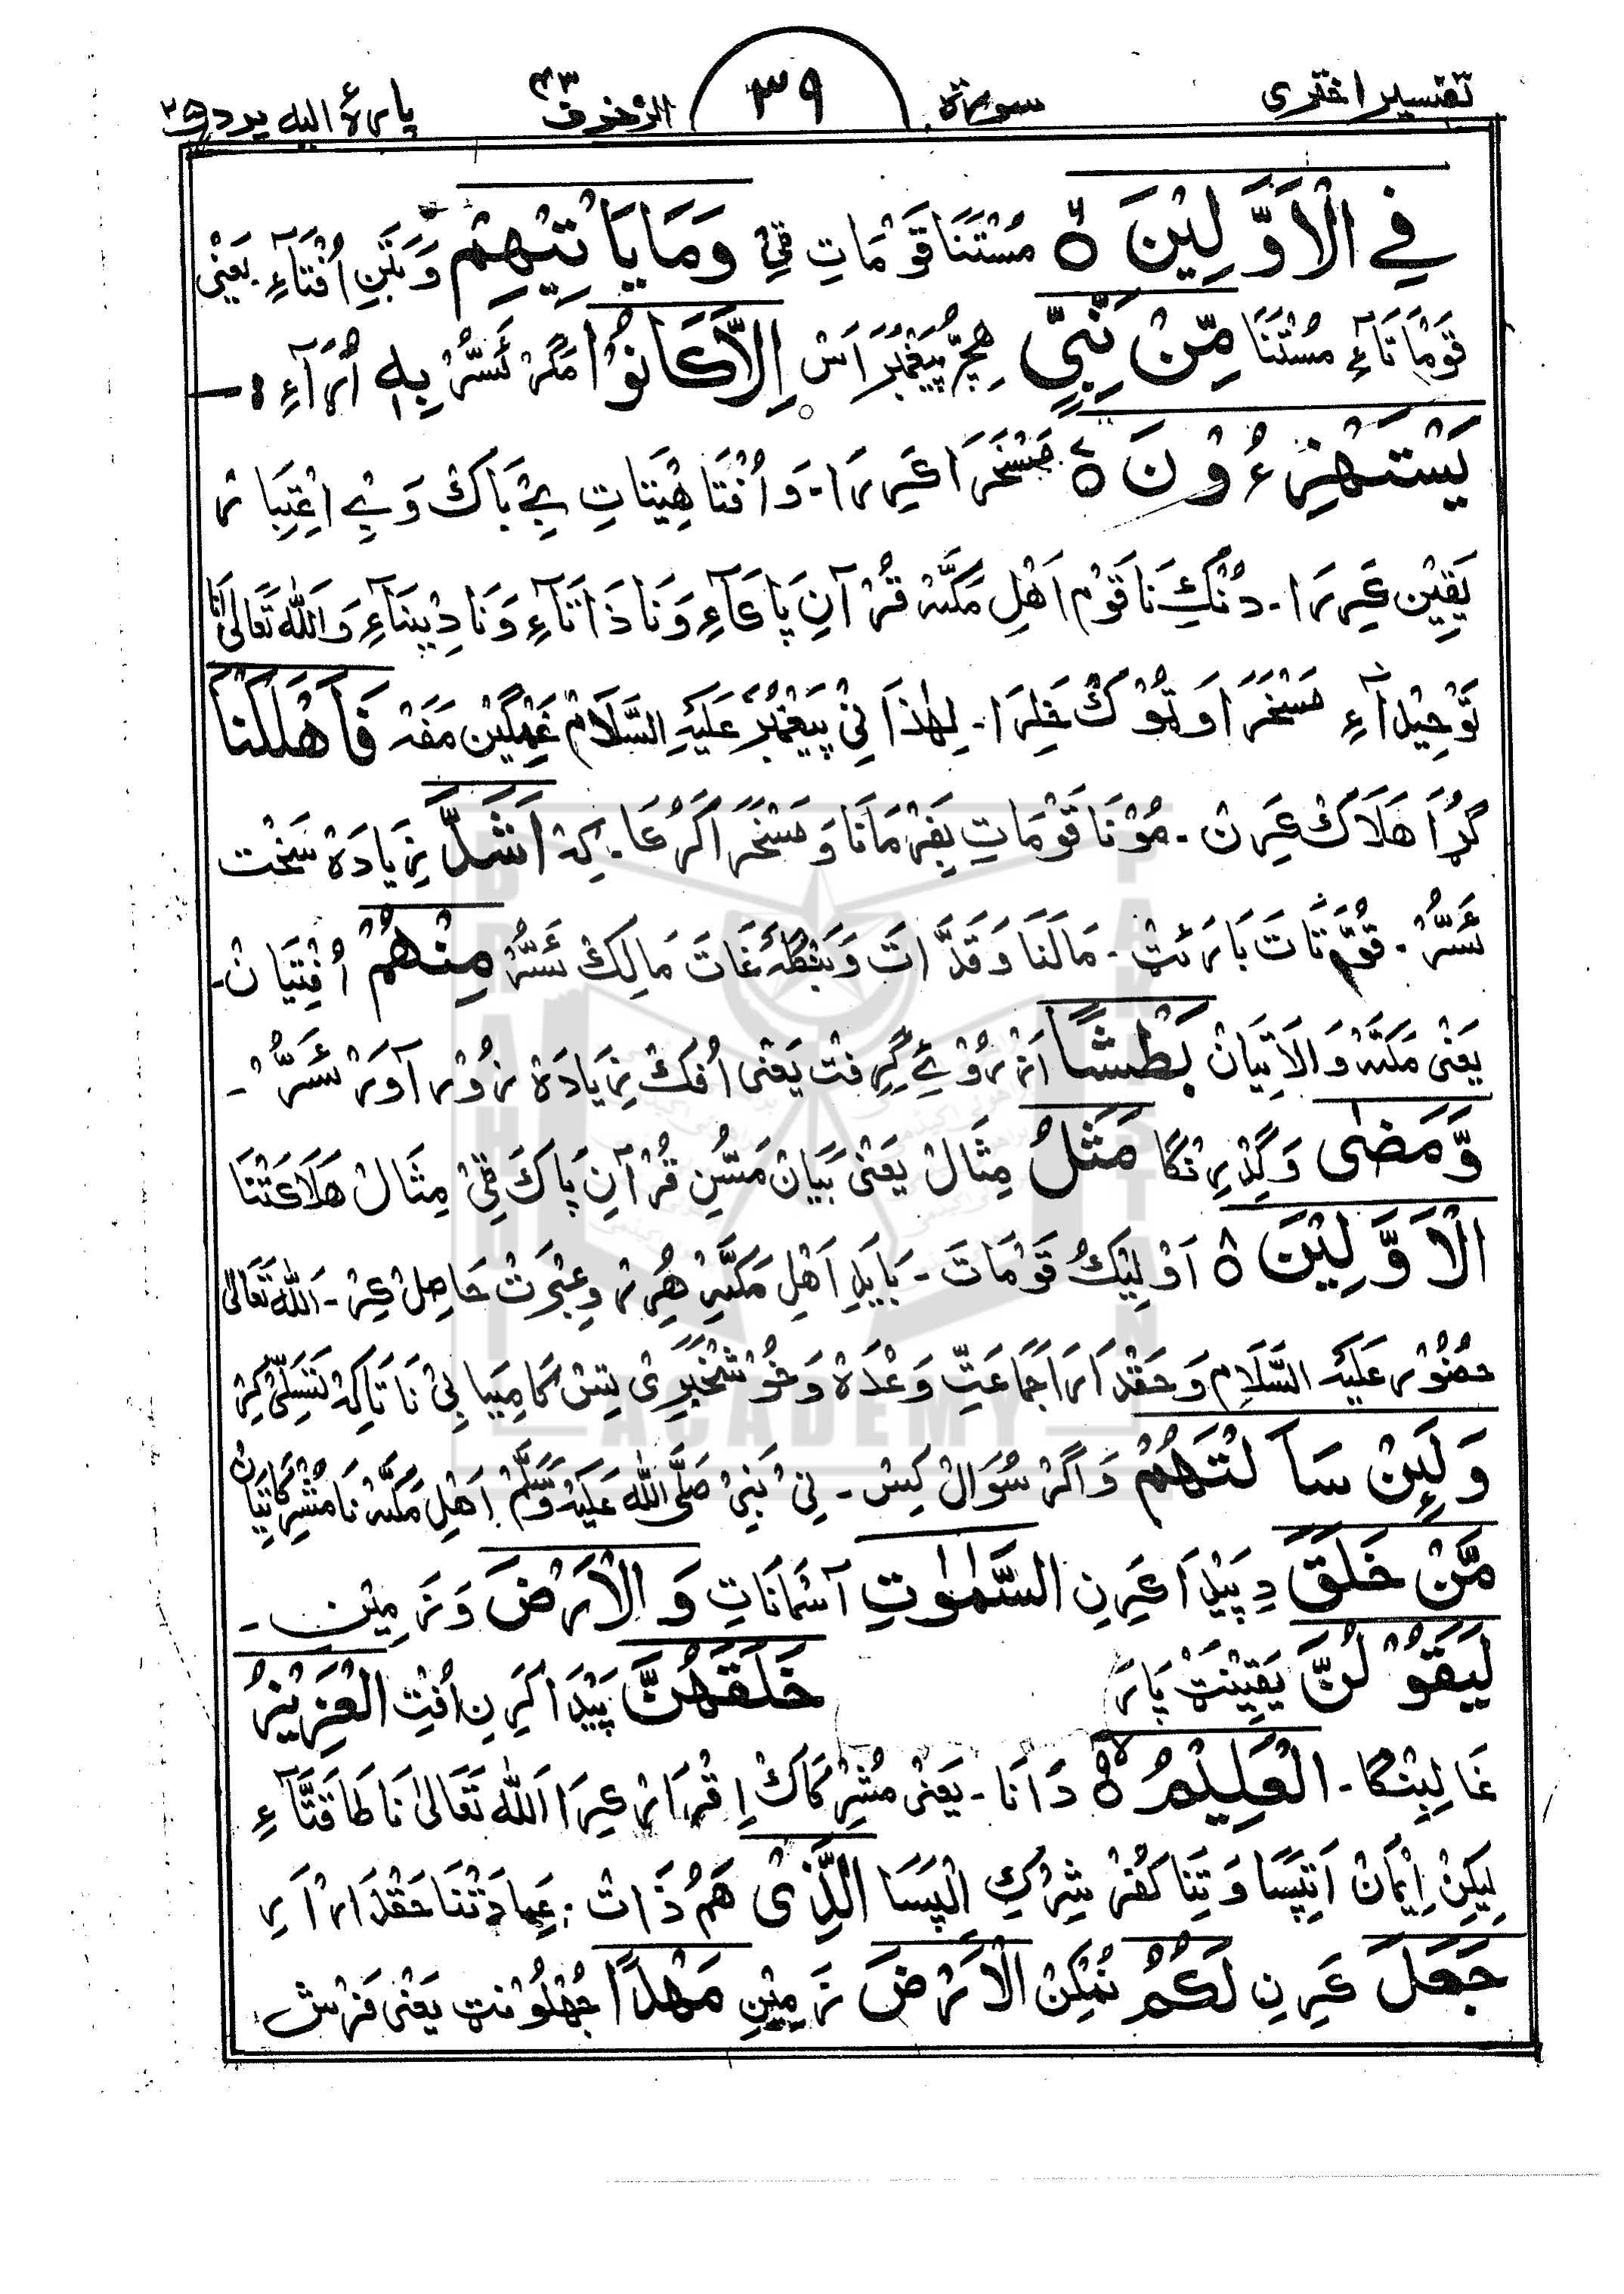 تفسیر اختری سورۃ ٣٩ الزخرف ٤٣ پارۂ الیہ یرد ٢٥
فِي الْاَوَّلِيْنَ ٥ مُسْتَنَا قَوْمَاتِ ٹِی وَمَا يَاْتِيْهِمْ وَ بَتَنِ اُفْتَآءِ۔ یَعْنٰی
قَوْمَا تَآءِ مُسْتَنَا مِّنْ نَّبِيٍّ هِچّ پَیْغَمْبَرْ اَسْ اِلَّا كَانُوْا مَگَرْ ئَسُّرْ بِهٖ اُرَآءِ ـ
يَسْتَهْزِءُوْنَ ٥ مَسْخَرَا کَرِرَا۔ وَ اُفْتَا هِیْتَاتِ بےْ بَاکْ وَ بےْ اِعْتِبَارْ
یَقِیْن کَرِرَا۔ دُنْکِ نَا قَوْم اَهْلِ مَکَّہْ قُرْآنِ پَاکَآءِ وَ نَا ذَاتَآءِ وَ نَا دِیْنَآءِ وَ اَللّٰہ تَعَالٰی نَا
تَوْحِیْد آءِ مَسْخَرَا وَ ٹُوْک خَلِرَا۔ لِهٰذَا نِیْ پَیْغَمْبَرْ عَلَیْہِ السَّلَامْ غَمْگِیْن مَفَہْ فَاَهْلَكْنَا
گُڑَا هَلَاکْ کَرِنْ۔ مُوْنَا قَوْمَاتِ بِفَرْمَانَا وَ مَسْخَرَا کَرُکَا۔ کِہْ اَشَدَّ زِیَادَہْ سَخْت
ئَسُّرْ۔ قُوَّتَاتَ بَارَئٹْ۔ مَالَنَا وَ قَدَّاتَ وَ بَنْگلہَ غَاتَ مَالِکْ ئَسُّرْ مِنْهُمْ اُفْتِیَانْ۔
یَعْنٰی مَکَّہْ وَالَاتِیَانْ بَطْشًا اَزْ رُوْئےْ گِرِفْتْ یَعْنٰی اُفْکْ زِیَادَہْ زُوْرْ آوَرْ ئَسُّرْ ۔
وَّمَضٰى وَ گِدْرِنْگَا مَثَلُ مِثَالْ یَعْنٰی بَیَانْ مَسُّنِ قُرْآنِ پَاکَ ٹِیْ مِثَالْ هَلَاکَتْنَا
الْاَوَّلِيْنَ ٥ اَوْلِیْکُ قَوْمَاتَ۔ بَایَدِ اَهْلِ مَکَّہِ هُرِرْ وَ عِبْرَتْ حَاصِلْ کِرْ۔ اَللّٰہ تَعَالٰی
حُضُوْر عَلَیْہِ السَّلَام وَ حَقْدَارَا جَمَاعَتِّ وَعْدَہْ وَ خُوْشْخَبَرِیْ تِسْ کَامِیَابِیْ نَا تَاکِہْ تَسَلِّیْ کِرْ
وَلَىِٕنْ سَاَلْتَهُمْ وَ اَگَرْ سُوَالْ کِسْ۔ نِیْ نَبِیْ صَلَّی اللّٰہُ عَلَیْہِ وَسَلَّمْ اَهْلِ مَکَّہْ نَا مُشْرِکَاتِیَانْ
مَّنْ خَلَقَ دِ پَیْدَا کَرِنِ السَّمٰوٰتِ آسْمَانَاتِ وَ الْاَرْضَ وَ زَمِیْن۔
لَيَقُوْلُنَّ یَقِیْنَنْٹ پَارَ خَلَقَهُنَّ پَیْدَا کَرِنِ اُفْتِ الْعَزِيْزُ
غَالِبنْگَا۔ الْعَلِيْمُ ٥ دَانَا۔ یَعْنٰی مُشْرِکَاکْ اِقْرَارْ کِرَا اَللّٰہ تَعَالٰی نَا طَاقَتَآءِ
لِیکِنْ اِیْمَانْ اَتَپَسَا وَ تَنَا کُفْرْ شِرْکِ اِلپَسَا الَّذِيْ هَمْ ذَاتْ۔ عِبَادَتْنَا حَقْدَارْ اَرِ
جَعَلَ کَرِنِ لَكُمُ نُمْکِنْ الْاَرْضَ زَمِیْنِ مَهْدًا جُھْلُوْنٹ یَعْنٰی فَرْش
BRAHUI ACADEMY PAKISTAN